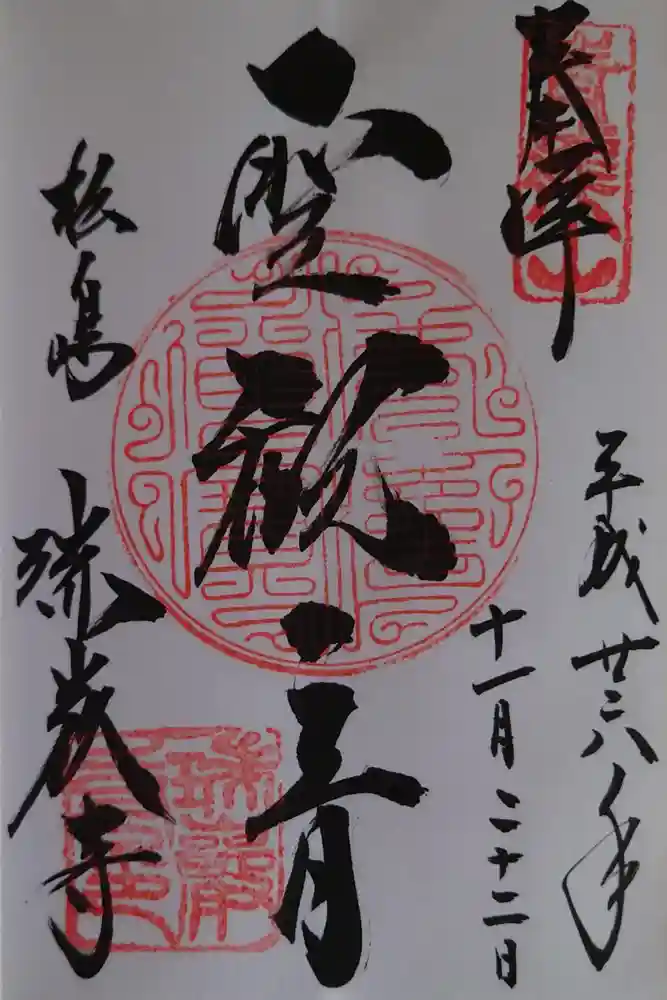 奉拝
平成廿六年
十一月二十二日
聖観音
松島
瑞巌寺